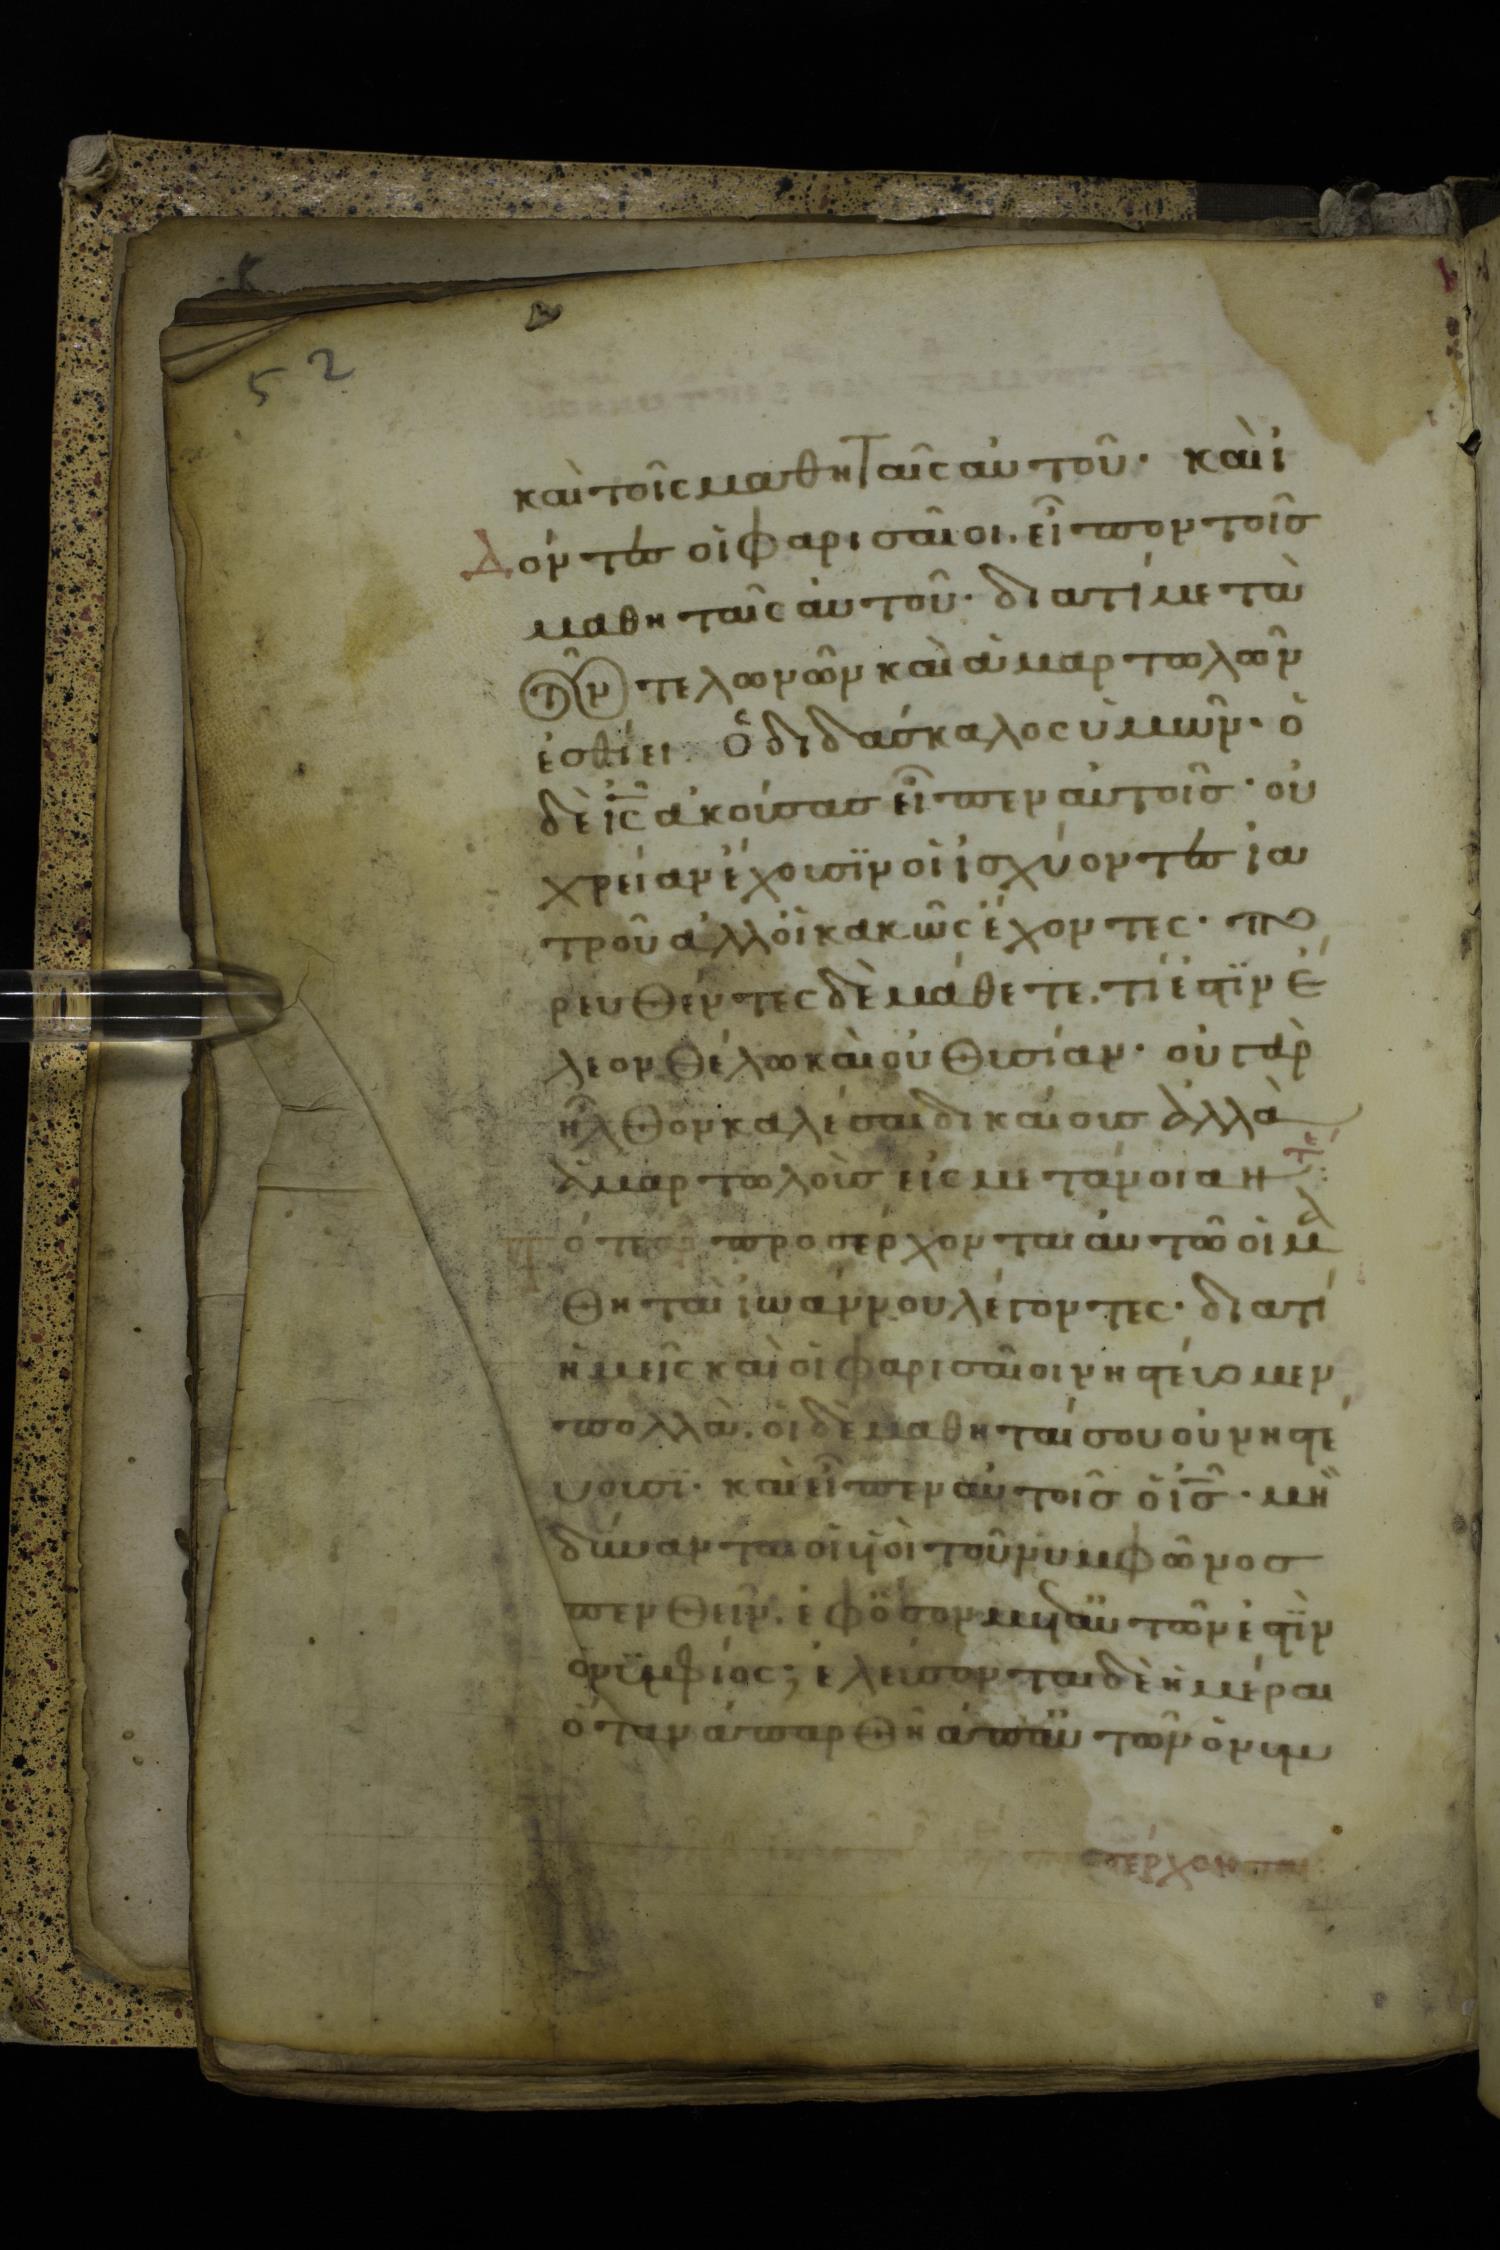 52
καὶ τοῖς μαθηταῖς αὐτοῦ· καὶ ἰ
δόντες οἱ φαρισαῖοι. εἶπον τοῖς
μαθηταῖς αὐτοῦ· διατί μετὰ
τῶν τελωνῶν καὶ ἁμαρτωλῶν
ἐσθίει ὁ διδάσκαλος ὑμῶν· ὁ
δὲ ι̅ς̅ ἀκούσας εἶπεν αὐτοῖς· οὐ
χρείαν ἔχουσϊν οἱ ἰσχύοντες ἰα
τροῦ ἀλλοἱ κακῶς ἔχοντες· πο
ρευθέντες δὲ μάθετε. τί ἐστϊν ἔ
λεον θέλω καὶ οὐ θυσίαν· οὐ γὰρ
ἦλθον καλέσαι δικαίους ἀλλὰ
ἁμαρτωλοὺς εἰς μετάνοιαν
τότε προσέρχονται αὐτῶ οἱ μα
θηταὶ ἰωάννου λέγοντες· διατί
ἡμεῖς καὶ οἱ φαρισαῖοι νηστεύομεν
πολλά. οἱ δὲ μαθηταί σου οὐ νηστε
ύουσϊ· καὶ εἶπεν αὐτοῖς ὁ ι̅ς̅· μὴ
δύνανται οἱ υἱοὶ τοῦ νυμφῶνος
πενθεῖν. ἐφ ὅσον μεταὐτῶν ἐστϊν
ὁ νυμφίος; ἐλεύσονται δὲ ἡμέραι
ὅταν ἀπαρθῆ ἀπαὐτῶν ὁ νυμ